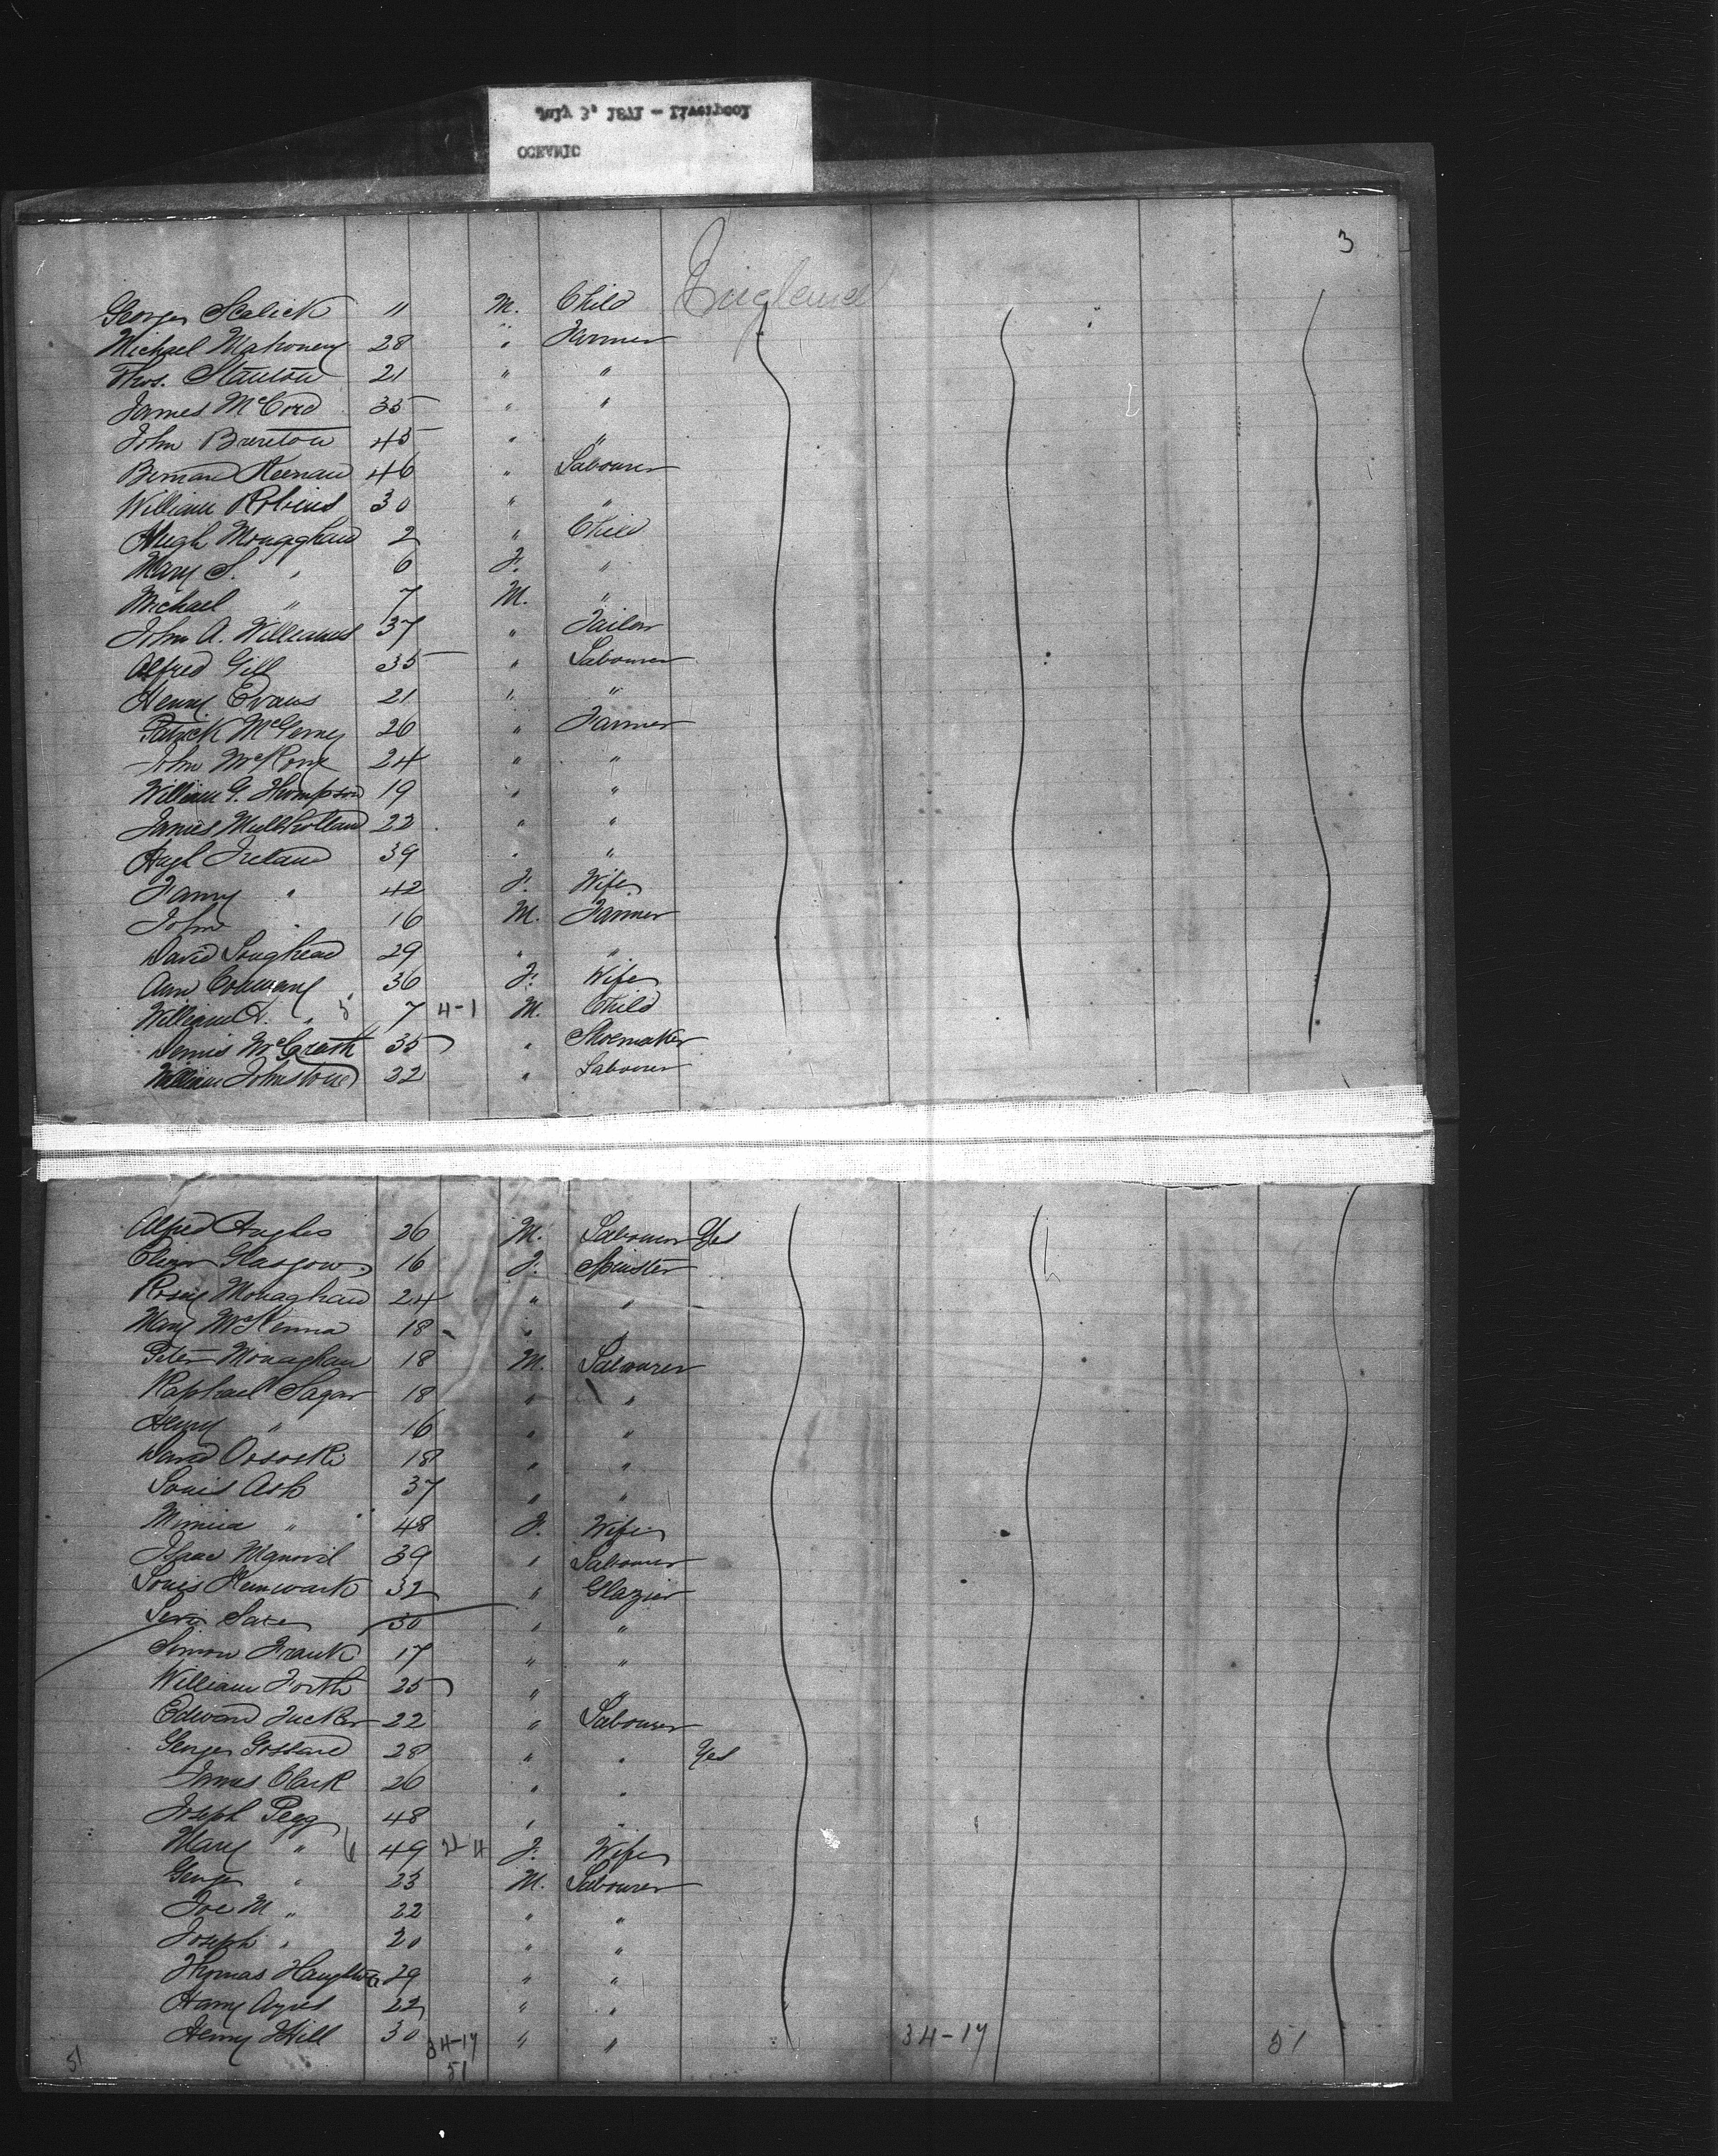 July 3, 1871 - Liverpool
OCEANIC
3
England
George 11 M. Child
Michael Mahoney 28 " Farmer
Thos. Stanton 21 " "
James McCord 35 " "
John Brereton 45 " "
Bernard Keenan 46 " Labourer
William Robins 30 " "
Hugh Monaghan 2 " Child
Mary S. " 6 F. "
Michael " 7 M. "
John A. Williams 37 " Tailor
Alfred Gill 35 " Labourer
Henry Evans 21 " "
Patrick 26 " Farmer
John 24 " "
William G. Thompson 19 " "
James Mullholland 22 " "
Hugh Ireland 39 " "
Fanny " 42 F. Wife
John " 16 M. Farmer
David Loughead 29 " "
Ann 36 F. Wife
William " 5 7 4-1 M. Child
Dennis McGrath 35 " Shoemaker
William Johnstone 32 " Labourer
Alfred Hughes 26 M. Labourer Yes
Glasgow 16 F. Spinster
Rosey Monaghan 24 " "
Mary McKenna 18 " "
Peter Monaghan 18 M. Labourer
Raphael Sagar 18 " "
Henry " 16 " "
David 18 " "
Louis Ash 37 " "
" 48 F. Wife
Isaac 39 " Labourer
Louis 32 " Glazier
30 " "
Simon Frank 17 " "
William Forth 25 " "
Edward Tucker 22 " Labourer
George 28 " " Yes
James Clark 26 " "
Joseph Pegg 48 " "
Mary " 6 49 F. Wife
George " 23 M. Labourer
Joe M " 22 " "
Joseph " 20 " "
Thomas 29 " "
Harry Ayres 22 " "
Henry Hill 30 34-17 " " 34-17 51
51 51